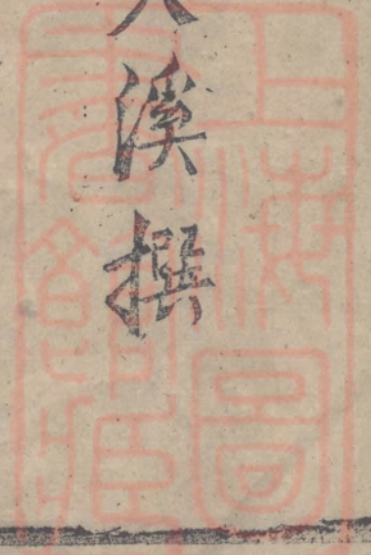 溪撰
上海圖
書館藏